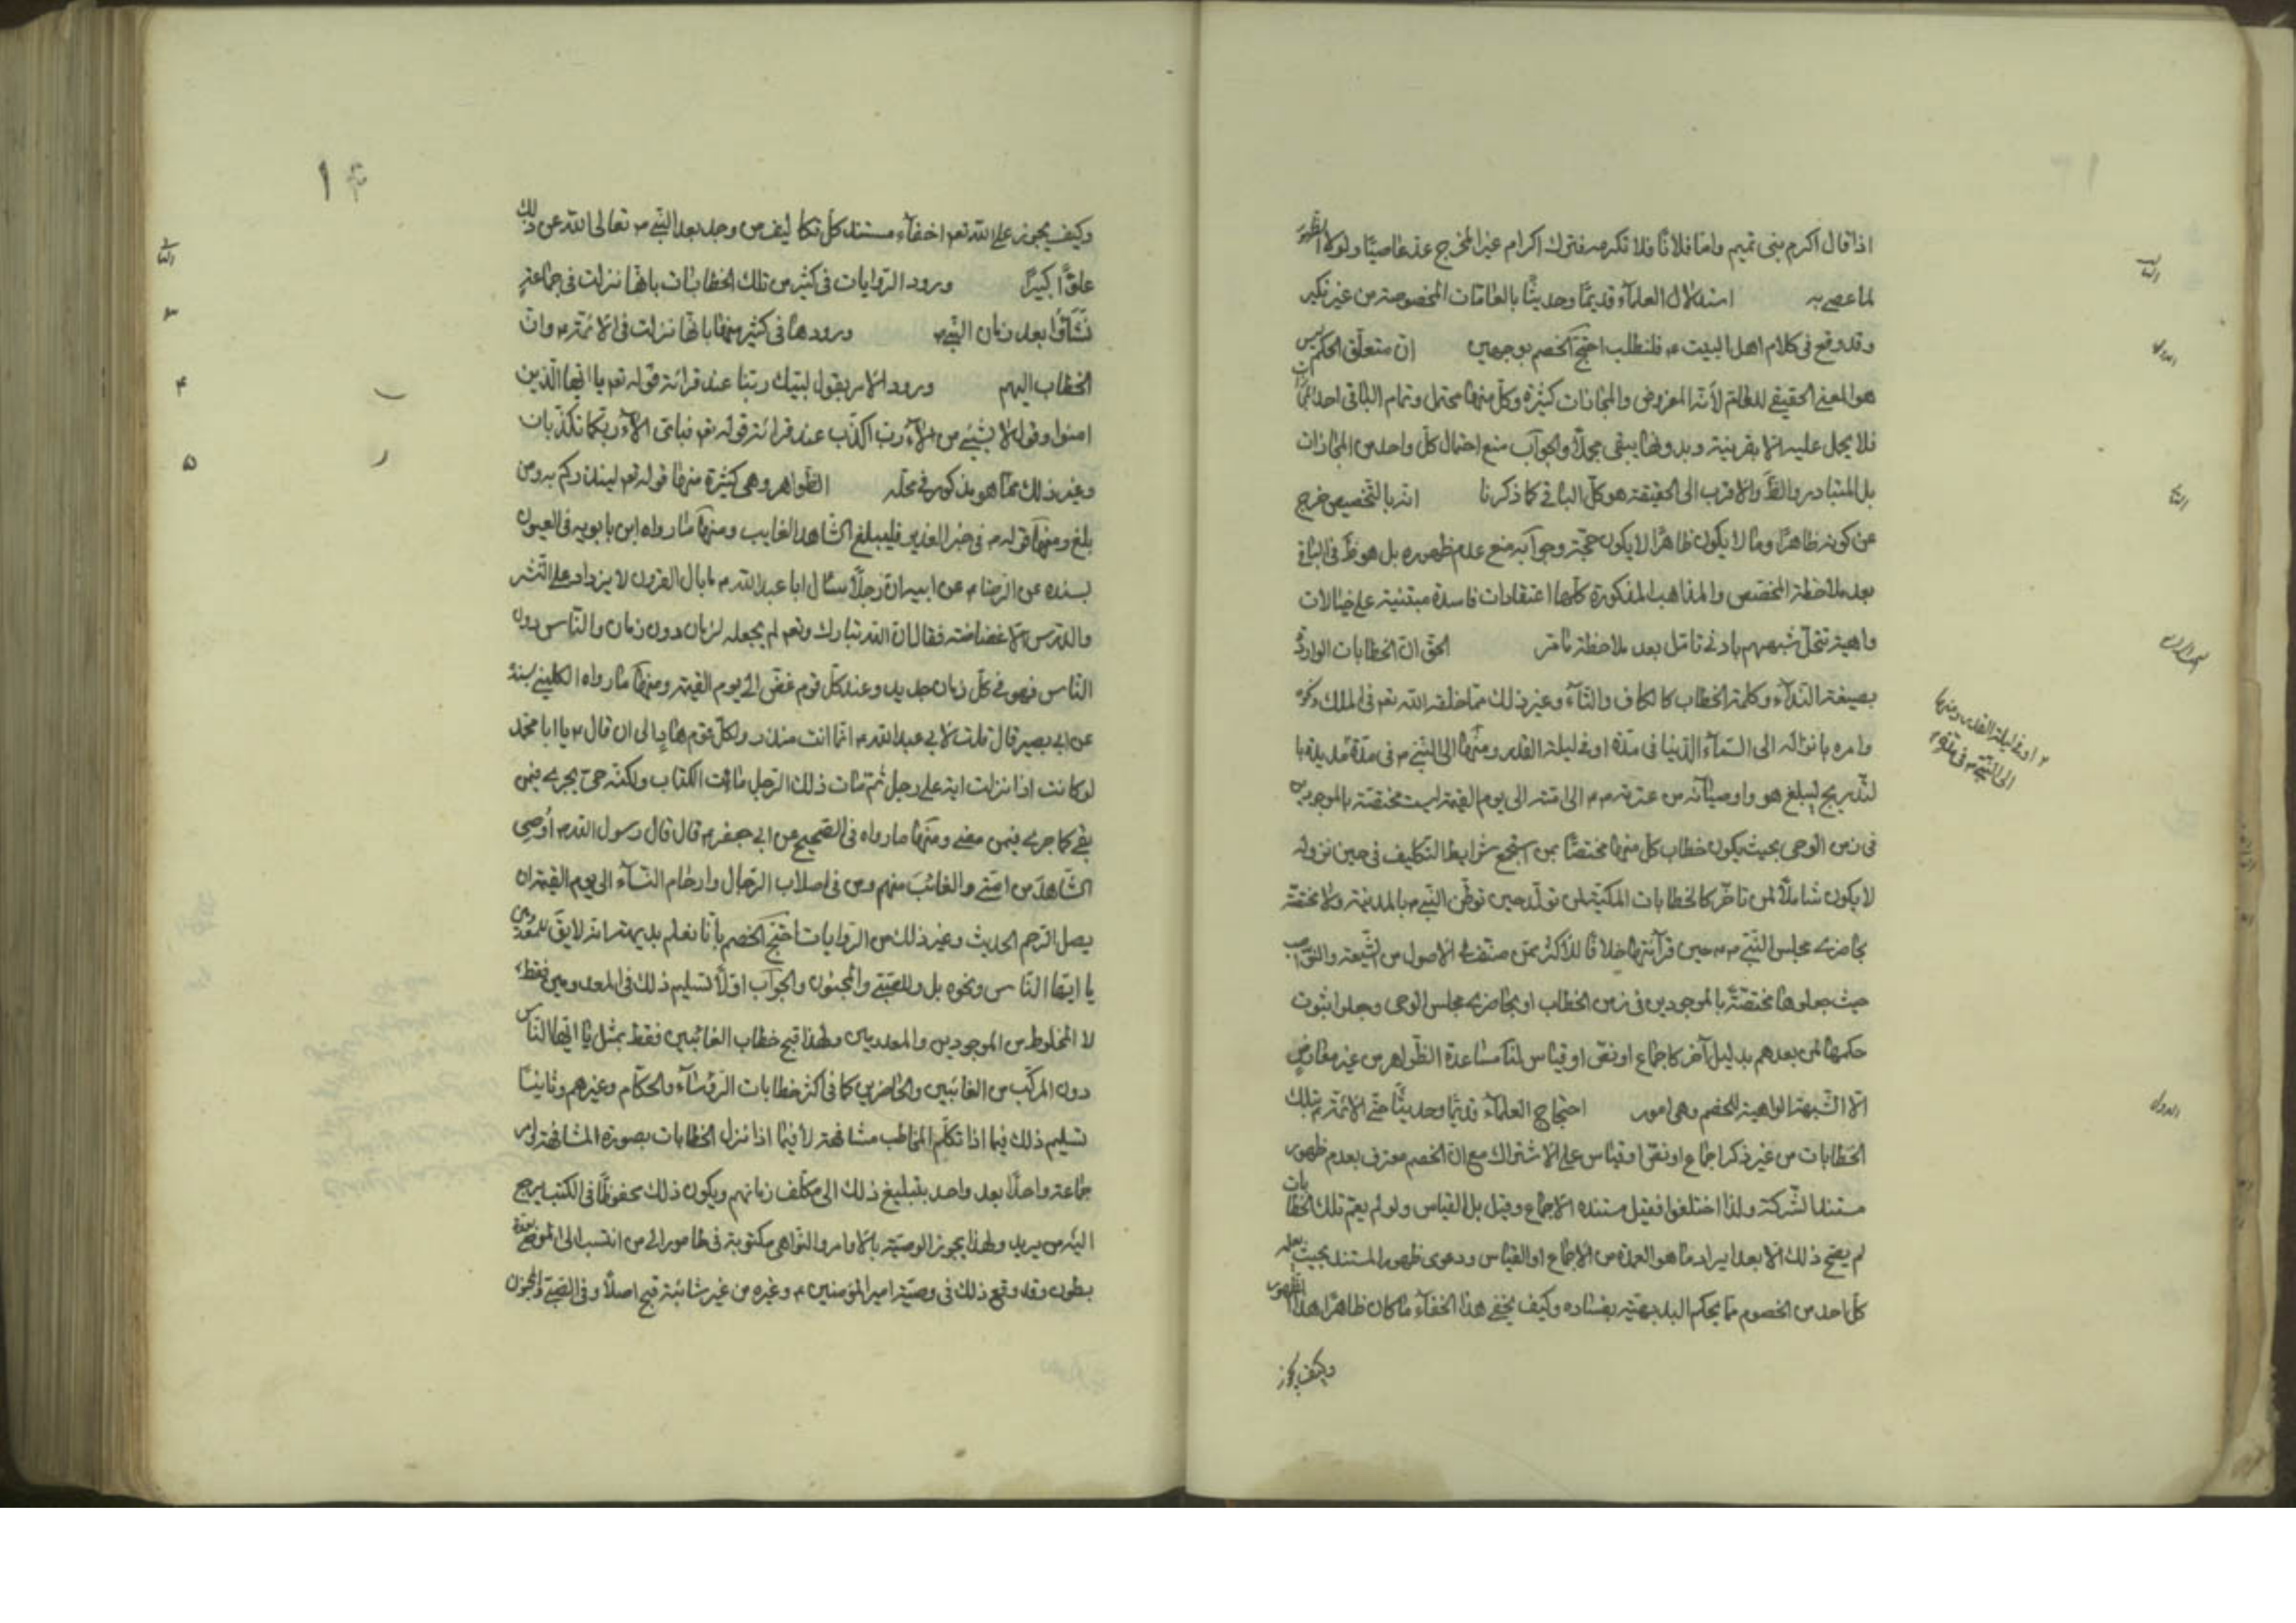 اذا قال اكرم بنى تميم واما فلانًا فلا تكرمه فترك اكرام غير المخرج عدّ عاصيًا ولولا الظهور
لما عصى به استدلال العلمآء قديمًا وحديثًا بالعامّات المخصوصة من غير نكير
وقد وقع فى كلام اهل البيت ع فلنطلب احتج الخصم بوجهين انّ متعلّق الحكم ليس
هو المعنى الحقيقى للعام لأنّه المفروض والمجازات كثيرة وكلّ منها محتمل وتمام الباقى احد المجازات
فلا يحمل عليه الّا بقرينة وبدونها يبقى مجملًا والجواب منع احتمال كلّ واحد من المجازات
بل المتبادر والظّ والاقرب الى الحقيقة هو كلّ الباقى كما ذكرنا انّه بالتخصيص خرج
عن كونه ظاهرًا وما لا يكون ظاهرًا لا يكون حجّة وجوابه منع عدم ظهوره بل هو ظّ فى الباقى
بعد ملاحظة المخصّص والمذاهب المذكورة كلّها اعتقادات فاسدة مبتنية على خيالات
واهية تنحلّ شبههم بادنى تامّل بعد ملاحظة ما مرّ الحقّ انّ الخطابات الواردة
بصيغة النّدآء وكلمة الخطاب كالكاف والتآء وغير ذلك ممّا خلقه الله تعم فى الملك
وامره بانزاله الى السّمآء الدّنيا فى مدّة او فى ليلة القدر ومنها الى النّبى ص فى مدّة مديدة با
لتّدريج ليبلغ هو واوصيآئه من عترته ع م الى امّته الى يوم القيمة ليست مختصّة بالموجودين
فى زمن الوحى بحيث يكون خطاب كلّ منها مختصًّا بمن استجمع شرايط التكليف فى حين نزوله
لا يكون شاملًا لمن تاخّر كالخطابات المكّيّة لمن تولّد حين توطّن النّبى ص بالمدينة ولا مختصّة
بحاضرى مجلس النّبى ص حين قرآئتها خلافًا للاكثر ممّن صنّف فى الاصول من الشّيعة والنّواصب
حيث جعلوها مختصّة بالموجودين فى زمن الخطاب او بحاضرى مجلس الوحى وجعلوا ثبوت
حكمها لمن بعدهم بدليل آخر كاجماع او نصّ او قياس لنا مساعدة الظّواهر من غير معارض
الّا الشّبهة الواهية للخصم وهى امور احتجاج العلمآء قديمًا وحديثًا حتّى الائمّة ع بتلك
الخطابات من غير ذكر اجماع او نصّ او قياس على الاشتراك مع انّ الخصم معترف بعدم ظهور
مستند الشّركة ولذا اختلفوا فقيل مستنده الاجماع وقيل بل القياس ولو لم يعمّ تلك الخطابات
لم يصحّ ذلك الّا بعد ايراد ما هو العمدة من الاجماع او القياس ودعوى ظهور المستند بحيث يعلمه
كلّ احد من الخصوم ممّا يحكم البديهيّة بفساده وكيف يخفى هذا الخفآء ما كان ظاهرًا هذا الظهور
وكيف يجوز
او فى ليلة القدر ومنها
الى النّبى ص فى مدّة
وكيف يجوز على الله تعم اخفآء مستند كلّ تكاليف من وجد بعد النّبى ص تعالى الله عن ذلك
علوًّا كبيرًا ورود الرّوايات فى كثير من تلك الخطابات بانّها نزلت فى جماعة
نشأوا بعد زمان النّبى ص ورودها فى كثير منها بانّها نزلت فى الائمّة ع وانّ
الخطاب اليهم ورود الامر بقول لبّيك ربّنا عند قرائة قوله تعم يا ايّها الّذين
امنوا وقول لا بشئ من الآء ربّ اكذّب عند قرائة قوله تعم فباىّ الآء ربّكما تكذّبان
وغير ذلك ممّا هو مذكور فى محلّه الظّواهر وهى كثيرة منها قوله تعم لينذركم به ومن
بلغ ومنها قوله ص فى خبر الغدير فليبلغ الشّاهد الغايب ومنها ما رواه ابن بابويه فى العيون
بسنده عن الرضا ع عن ابيه انّ رجلًا سئال ابا عبد الله ع ما بال القرون لا يزداد على النّشر
والدّرس الّا غضاضة فقال ان الله تبارك وتعم لم يجعله لزمان دون زمان والنّاس دون
النّاس فهو فى كلّ زمان جديد وعند كلّ قوم غضّ الى يوم القيمة ومنها ما رواه الكلينى بسنده
عن ابى بصير قال قلت لابى عبد الله ع انّما انت منذر ولكلّ قوم هاد الى ان قال ع يا ابا محمّد
لو كانت اذا نزلت اية على رجل ثمّ مات ذلك الرّجل ماتت الكتاب ولكنّه حىّ يجرى فيمن
بقى كما جرى فيمن مضى ومنها ما رواه فى الصّحيح عن ابى جعفر ع قال قال رسول الله ص اُوصى
الشّاهد من امّتى والغائب منهم ومن فى اصلاب الرّجال وارحام النّسآء الى يوم القيمة ان
يصل الرّحم الحديث وغير ذلك من الرّوايات احتج الخصم بانّا نعلم بديهة انّه لا يقّ للمعدومين
يا ايّها النّاس ونحوه بل وللصّبى والمجنون والجواب اوّلًا تسليم ذلك فى المعدومين فقط
لا المخلوط من الموجودين والمعدومين ولهذا قبح خطاب الغائبين فقط بمثل يا ايّها النّاس
دون المركّب من الغائبين والحاضرين كما فى اكثر خطابات الرّؤسآء والحكّام وغيرهم وثانيًا
تسليم ذلك فيما اذا تكلّم المخاطب مشافهة لا فيما اذا نزل الخطابات بصورة المشافهة لامر
جماعة واحدًا بعد واحد بتبليغ ذلك الى مكلّف زمانهم ويكون ذلك محفوظًا فى الكتب يرجع
اليه من يريد ولهذا يجوز الوصيّة بالاوامر والنّواهى مكتوبة فى طامور الى من انتسب الى الموصى بعدة
بطون وقد وقع ذلك فى وصيّة امير المؤمنين ع وغيره من غير شائبة قبح اصلًا وفى الصّبى والمجنون